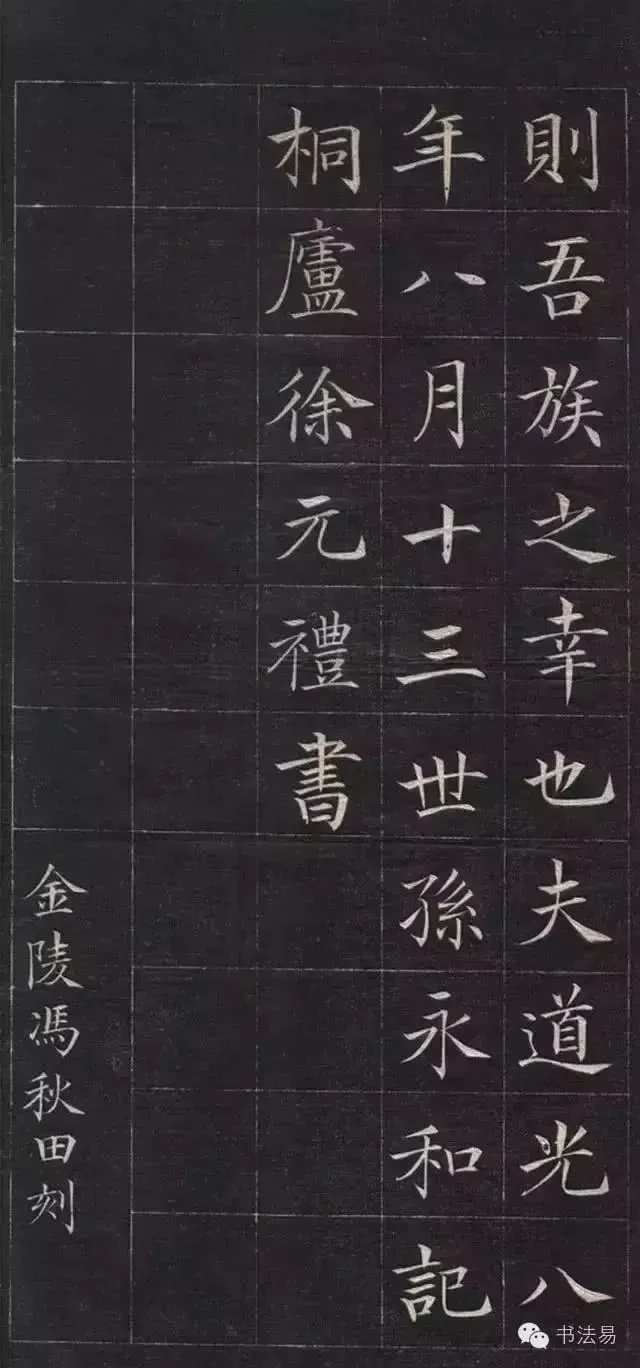 則吾族之幸也夫道光八
年八月十三世孫永和記
桐廬徐元禮書
金陵馮秋田刻
书法易